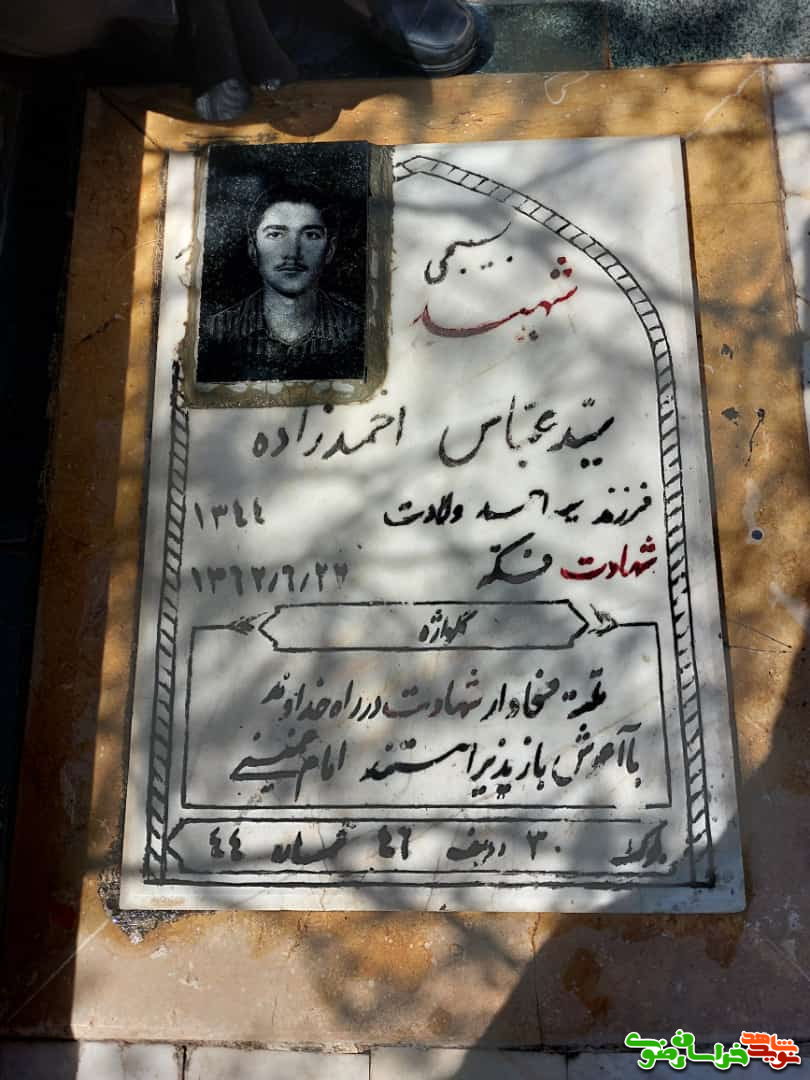 بسیجی
شهید
سیّد عبّاس احمدزاده
فرزند ولادت ۱۳۴۴
شهادت فکه ۱۳۶۲/۶/۲۲
گلواژه
شهادت در راه خداوند
با آغوش باز پذیرا هستند امام خمینی
بلوک ۳۰ ردیف ۴۶ شماره ۴۴
نوید شاهد خراسان رضوی